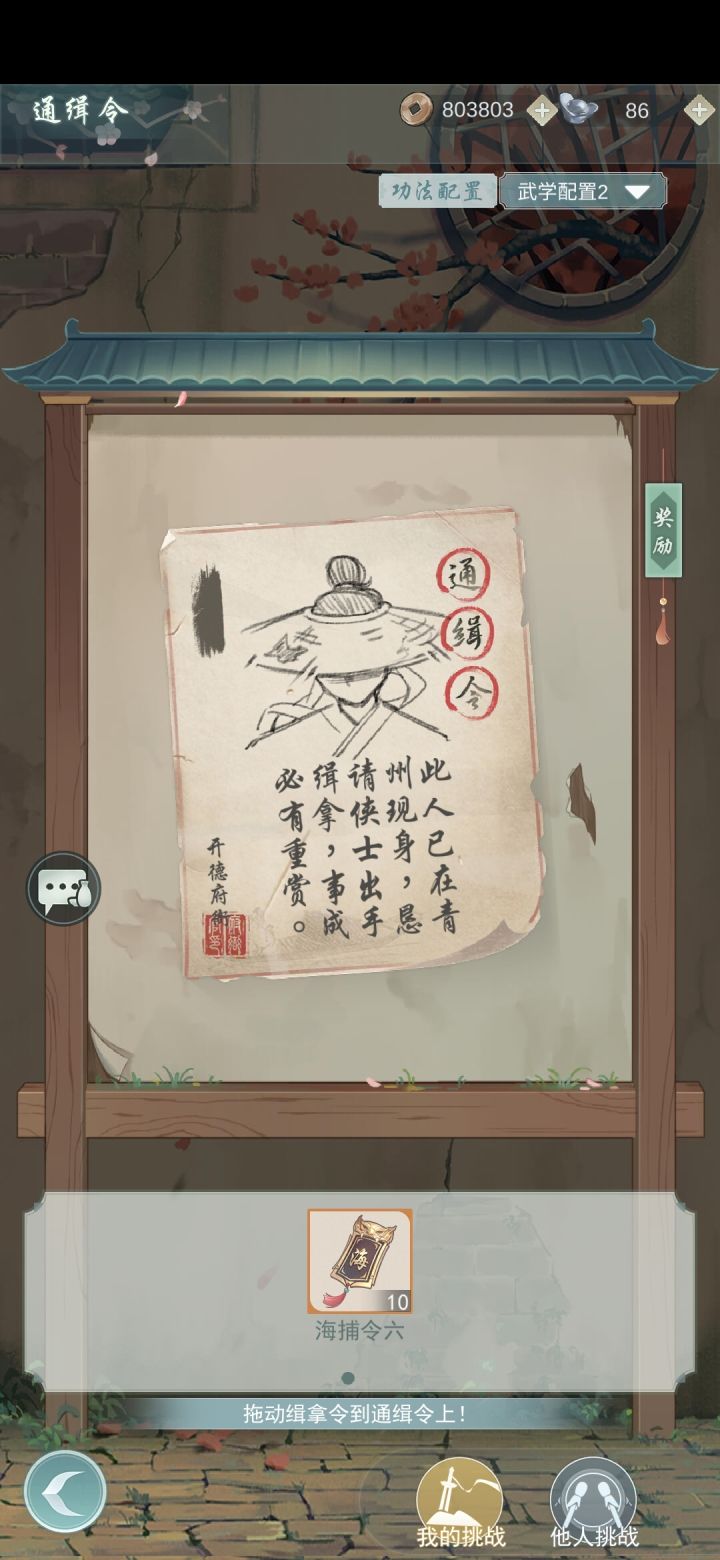 通缉令
803803
86
功法配置
武学配置2
奖励
通缉令
此人已在青
州现身，恳
请侠士出手
缉拿，事成
必有重赏。
开德府衙
海
10
海捕令六
拖动缉拿令到通缉令上！
我的挑战
他人挑战